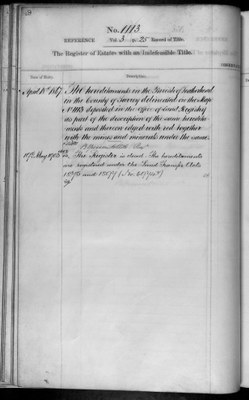 No. 1113
REFERENCE Vol. 3 p. 25 Record of Title.
The Register of Estates with an Indefeasible Title.
Date of Entry. Description.
April 18th 1867 The hereditaments in the Parish of Leatherhead
in the County of Surrey delineated on the Map
No. 1113 deposited in the office of Land Registry
as part of the description of the same heredita-
ments and thereon edged with red together
with the mines and minerals under the same.
May 1903 The Register is closed. The hereditaments
are registered under the Land Transfer Acts
1875 and 1897